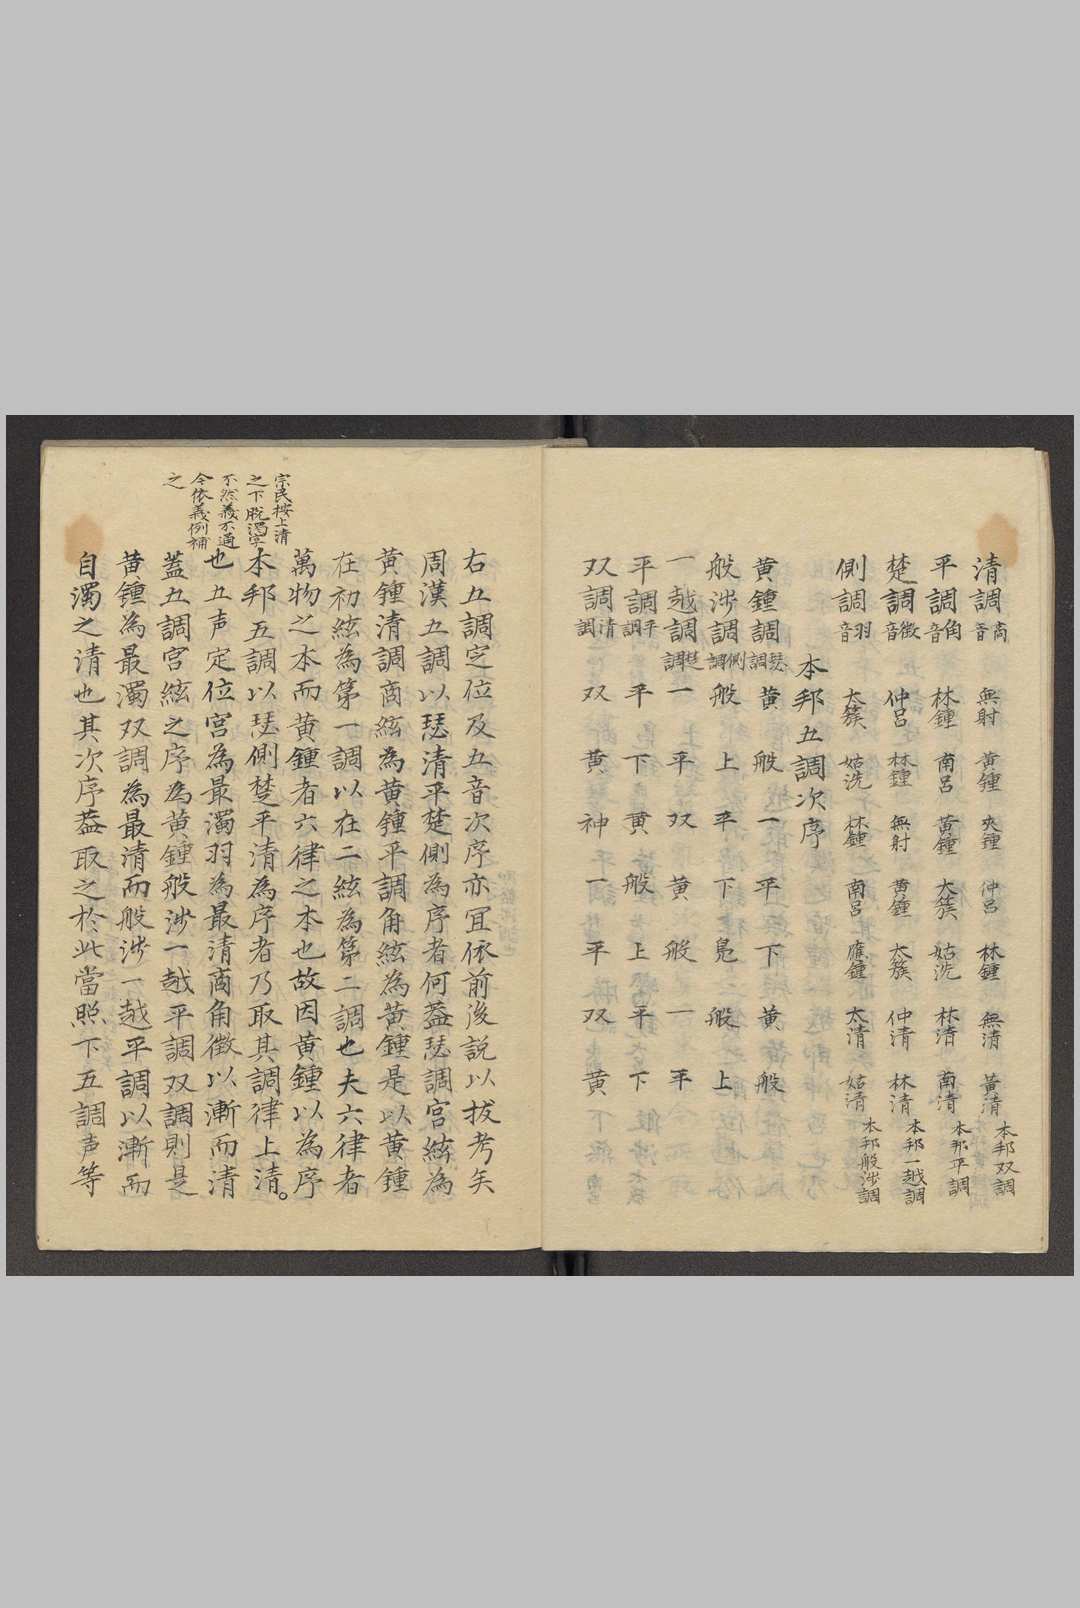 清調商音 無射 黄鍾 夾鍾 仲呂 林鍾 無清 黃清 本邦双調
平調角音 林鍾 南呂 黃鍾 大簇 姑洗 林清 南清 本邦平調
楚調徵音 仲呂 林鍾 無射 黄鍾 太簇 仲清 林清 本邦一越調
側調羽音 大簇 姑洗 林鍾 南呂 應鍾 太清 姑清 本邦般渉調
本邦五調次序
黄鍾調瑟調 黄 般 一 平 下 黄 般
般渉調側調 般 上 平 下 鳧 般 上
一越調楚調 一 平 双 黄 般 一 平
平調平調 平 下 黄 般 上 平 下
双調清調 双 黄 神 一 平 双 黄
右五調定位及五音次序亦冝依前後説以拔考矣
周漢五調以瑟清平楚側為序者何葢瑟調宮絃為
黄鍾清調商絃為黄鍾平調角絃為黄鍾是以黄鍾
在初絃為第一調以在二絃為第二調也夫六律者
萬物之本而黄鍾者六律之本也故因黄鍾以為序
本邦五調以瑟側楚平清為序者乃取其調律上清。
也五声定位宮為最濁羽為最清商角徴以漸而清
蓋五調宮絃之序為黄鍾般渉一越平調双調則是
黄鍾為最濁双調為最清而般渉一越平調以漸而
自濁之清也其次序葢取之於此當照下五調声等
宗民按上清
之下脱濁字
不然義不通
今依義例補
之